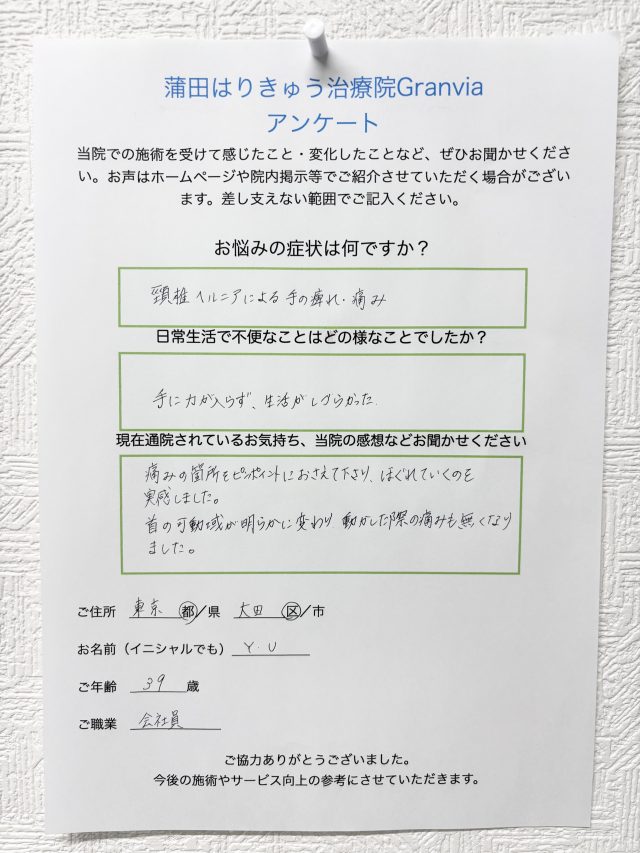 蒲田はりきゅう治療院Granvia
アンケート
当院での施術を受けて感じたこと・変化したことなど、ぜひお聞かせくださ
い。お声はホームページや院内掲示等でご紹介させていただく場合がござい
ます。差し支えない範囲でご記入ください。
お悩みの症状は何ですか？
頸椎ヘルニアによる手の痺れ・痛み
日常生活で不便なことはどの様なことでしたか？
手に力が入らず、生活がしずらかった.
現在通院されているお気持ち、当院の感想などお聞かせください
痛みの箇所をピンポイントにおさえて下さり、ほぐれていくのを
実感しました。
首の可動域が明らかに変わり 動かした際の痛みも無くなり
ました。
ご住所 東京 都/県 大田 区/市
お名前（イニシャルでも） Y.U
ご年齢 39 歳
ご職業 会社員
ご協力ありがとうございました。
今後の施術やサービス向上の参考にさせていただきます。